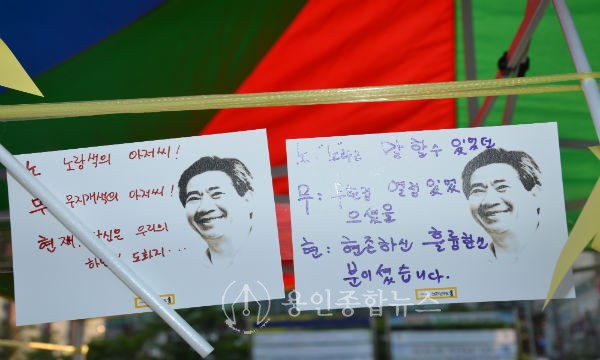 노 노랑색의 아저씨!
무 무지개색의 아저씨!
현재. 당신은 우리의
하얀 도화지...
노: 노래를 잘 할수 있었던
무: 열려 있었
으셨을
현: 현존하신 훌륭하신
분이셨습니다.
용인종합뉴스